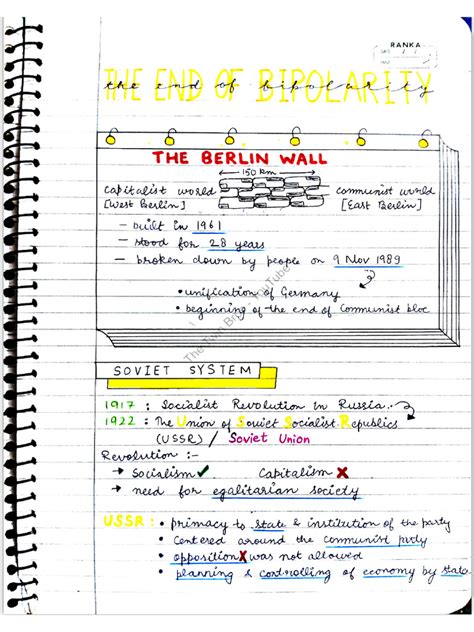 RANKA
DATE / /
THE END OF BIPOLARITY
the end of bipolarity
THE BERLIN WALL
150 km
capitalist world
[West Berlin]
communist world
[East Berlin]
– built in 1961
– stood for 28 years
– broken down by people on 9 Nov 1989
• unification of Germany
• beginning of the end of Communist bloc
SOVIET SYSTEM
1917 : Socialist Revolution in Russia
1922 : The Union of Soviet Socialist Republics
(USSR) / Soviet Union
Revolution :-
→ Socialism ✓ Capitalism X
→ need for egalitarian society
USSR : • primacy to state & institution of the party
• Centered around the communist party
• opposition X was not allowed
• planning & controlling of economy by state